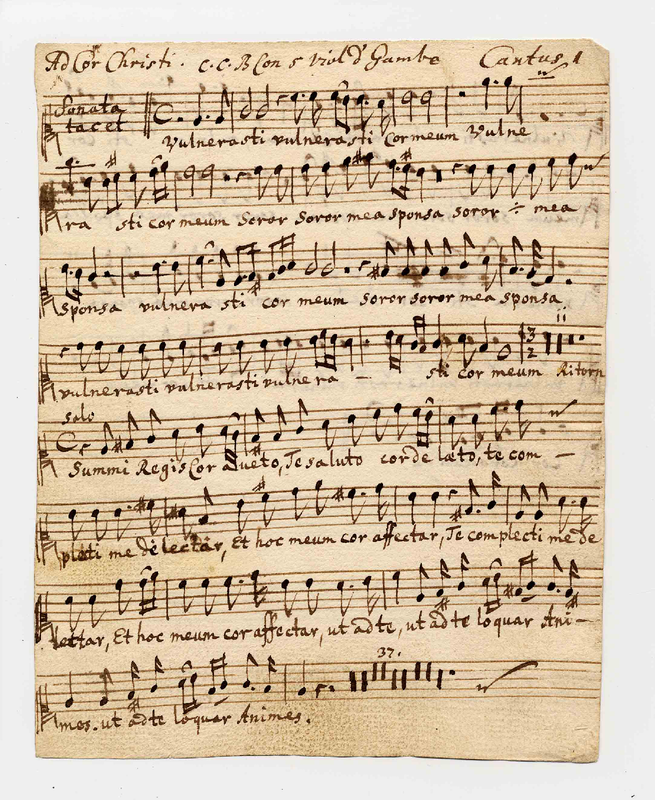 Ad Cor Christi. C. C. B Con 5 Viol d' Gambe Cantus 1
Sonata
tacet
Vulnerasti vulnerasti Cor meum Vulne
ra sti cor meum Soror Soror mea sponsa soror ÷ mea
Sponsa vulnera sti cor meum soror soror mea sponsa
ii
vulnerasti vulnerasti vulnera – sti cor meum Ritorn
Solo
Summi Regis Cor aveto, Te saluto corde læto, te com –
plecti me delectar, Et hoc meum cor affectar, Te complecti me de
lettar, Et hoc meum cor affectar, ut ad te, ut ad te loquar Ani –
37.
mes. ut ad te loquar Animes.